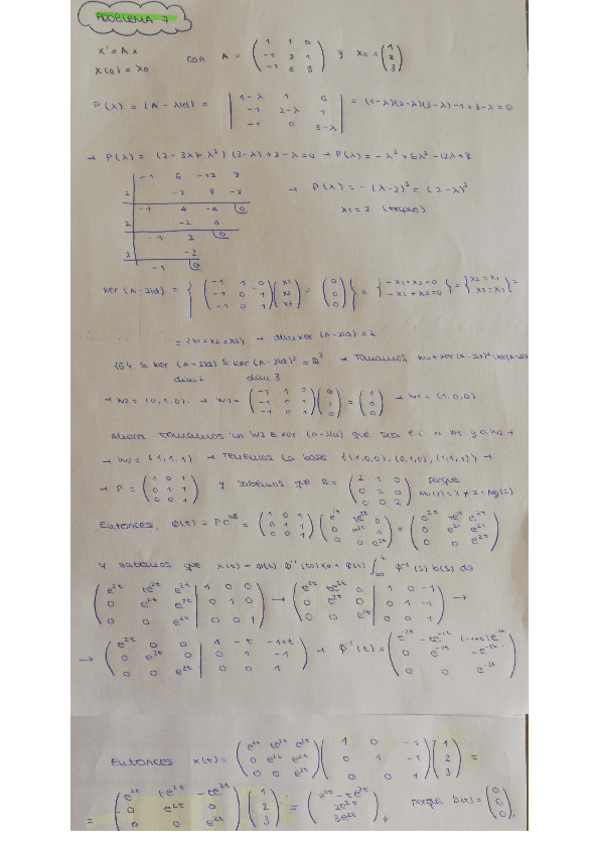 PROBLEMA 7
x' = Ax
x(0) = x0
con A = (1 1 0; -1 2 1; -1 0 3) y x0 = (1; 2; 3)
P(λ) = (A - λId) = |1-λ 1 0; -1 2-λ 1; -1 0 3-λ| = (1-λ)(2-λ)(3-λ)-1+3-λ=0
→ P(λ) = (2-3λ+λ²)(3-λ)+2-λ=0 → P(λ) = -λ³+6λ²-12λ+8
-1 6 -12 8
2 -2 8 -8
-1 4 -4 0
2 -2 4
-1 2 0
2 -2
-1 0
→ P(λ) = -(λ-2)³ = (2-λ)³
λ1 = 2 (triple)
Ker (A-2Id) = { (-1 1 0; -1 0 1; -1 0 1)(x1; x2; x3) = (0; 0; 0) } = { -x1+x2=0; -x1+x3=0 } = { x2=x1; x3=x1 } =
= {x1=x2=x3} → dim ker (A-2Id) = 2
dim 2 dim 3
→ w2 = (0,1,0). → w1 = (-1 1 0; -1 0 1; -1 0 1)(0; 1; 0) = (1; 0; 0) → w1 = (1,0,0)
Ahora tomamos un w3 ∈ ker (A-2Id) que sea l.i. a w1 y a w2 →
→ w3 = (1,1,1) → Tenemos la base {(1,0,0), (0,1,0), (1,1,1)} →
→ P = (1 0 1; 0 1 1; 0 0 1) y sabemos que B = (2 1 0; 0 2 0; 0 0 2) porque
Entonces, ϕ(t) = (1 0 1; 0 1 1; 0 0 1)(e^2t te^2t 0; 0 e^2t 0; 0 0 e^2t) = (e^2t te^2t e^2t; 0 e^2t e^2t; 0 0 e^2t)
Y sabemos que x(t) = ϕ(t) · ϕ⁻¹(t0) x0 + ϕ(t) ∫ ϕ⁻¹(s) b(s) ds
(e^2t te^2t e^2t; 0 e^2t e^2t; 0 0 e^2t | 1 0 0; 0 1 0; 0 0 1) → (e^2t te^2t 0; 0 e^2t 0; 0 0 e^2t | 1 0 -1; 0 1 -1; 0 0 1) →
→ (e^2t 0 0; 0 e^2t 0; 0 0 e^2t | 1 -t -1+t; 0 1 -1; 0 0 1) → ϕ⁻¹(t) = (e^-2t -te^-2t (-1+t)e^-2t; 0 e^-2t -e^-2t; 0 0 e^-2t)
Entonces x(t) = (e^2t te^2t e^2t; 0 e^2t e^2t; 0 0 e^2t)(1 0 -1; 0 1 -1; 0 0 1)(1; 2; 3) =
= (e^2t te^2t -te^2t; 0 e^2t 0; 0 0 e^2t)(1; 2; 3) = (e^2t - te^2t; 2e^2t; 3e^2t), porque b(t) = (0; 0; 0),